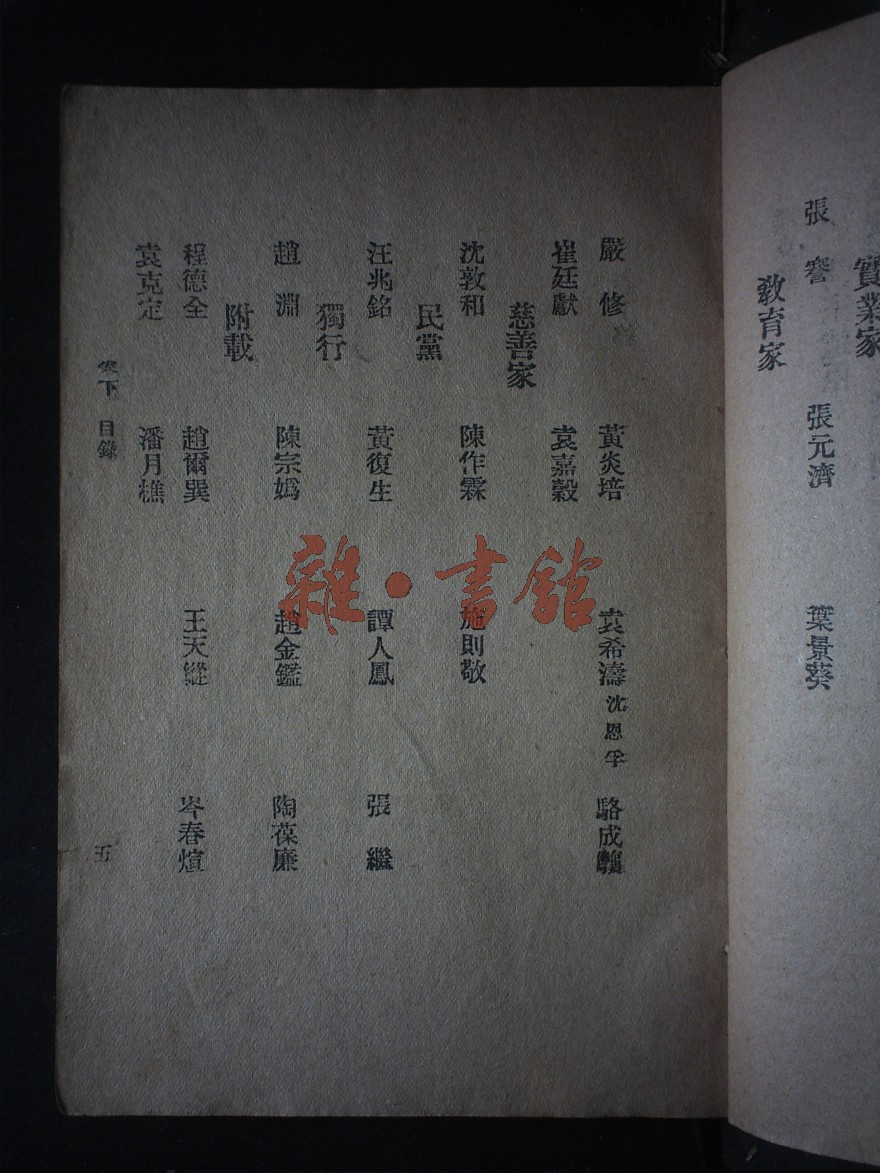 實業家
張謇 張元濟 葉景葵
教育家
嚴修 黃炎培 袁希濤 沈恩孚 駱成驤
崔廷獻 袁嘉穀
慈善家
沈敦和 陳作霖 施則敬
民黨
汪兆銘 黃復生 譚人鳳 張繼
獨行
趙淵 陳宗嬀 趙金鑑 陶葆廉
附載
程德全 趙爾巽 王天縱 岑春煊
袁克定 潘月樵
卷下 目錄 五
雜·書館